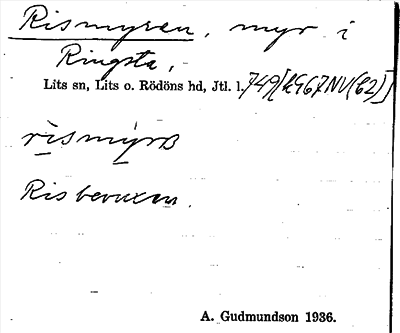 Rismyren, myr i
Ringsta,
Lits sn, Lits o. Rödöns hd, Jtl. l. 749
rismyrn
Risbevuxen.
A. Gudmundson 1936.